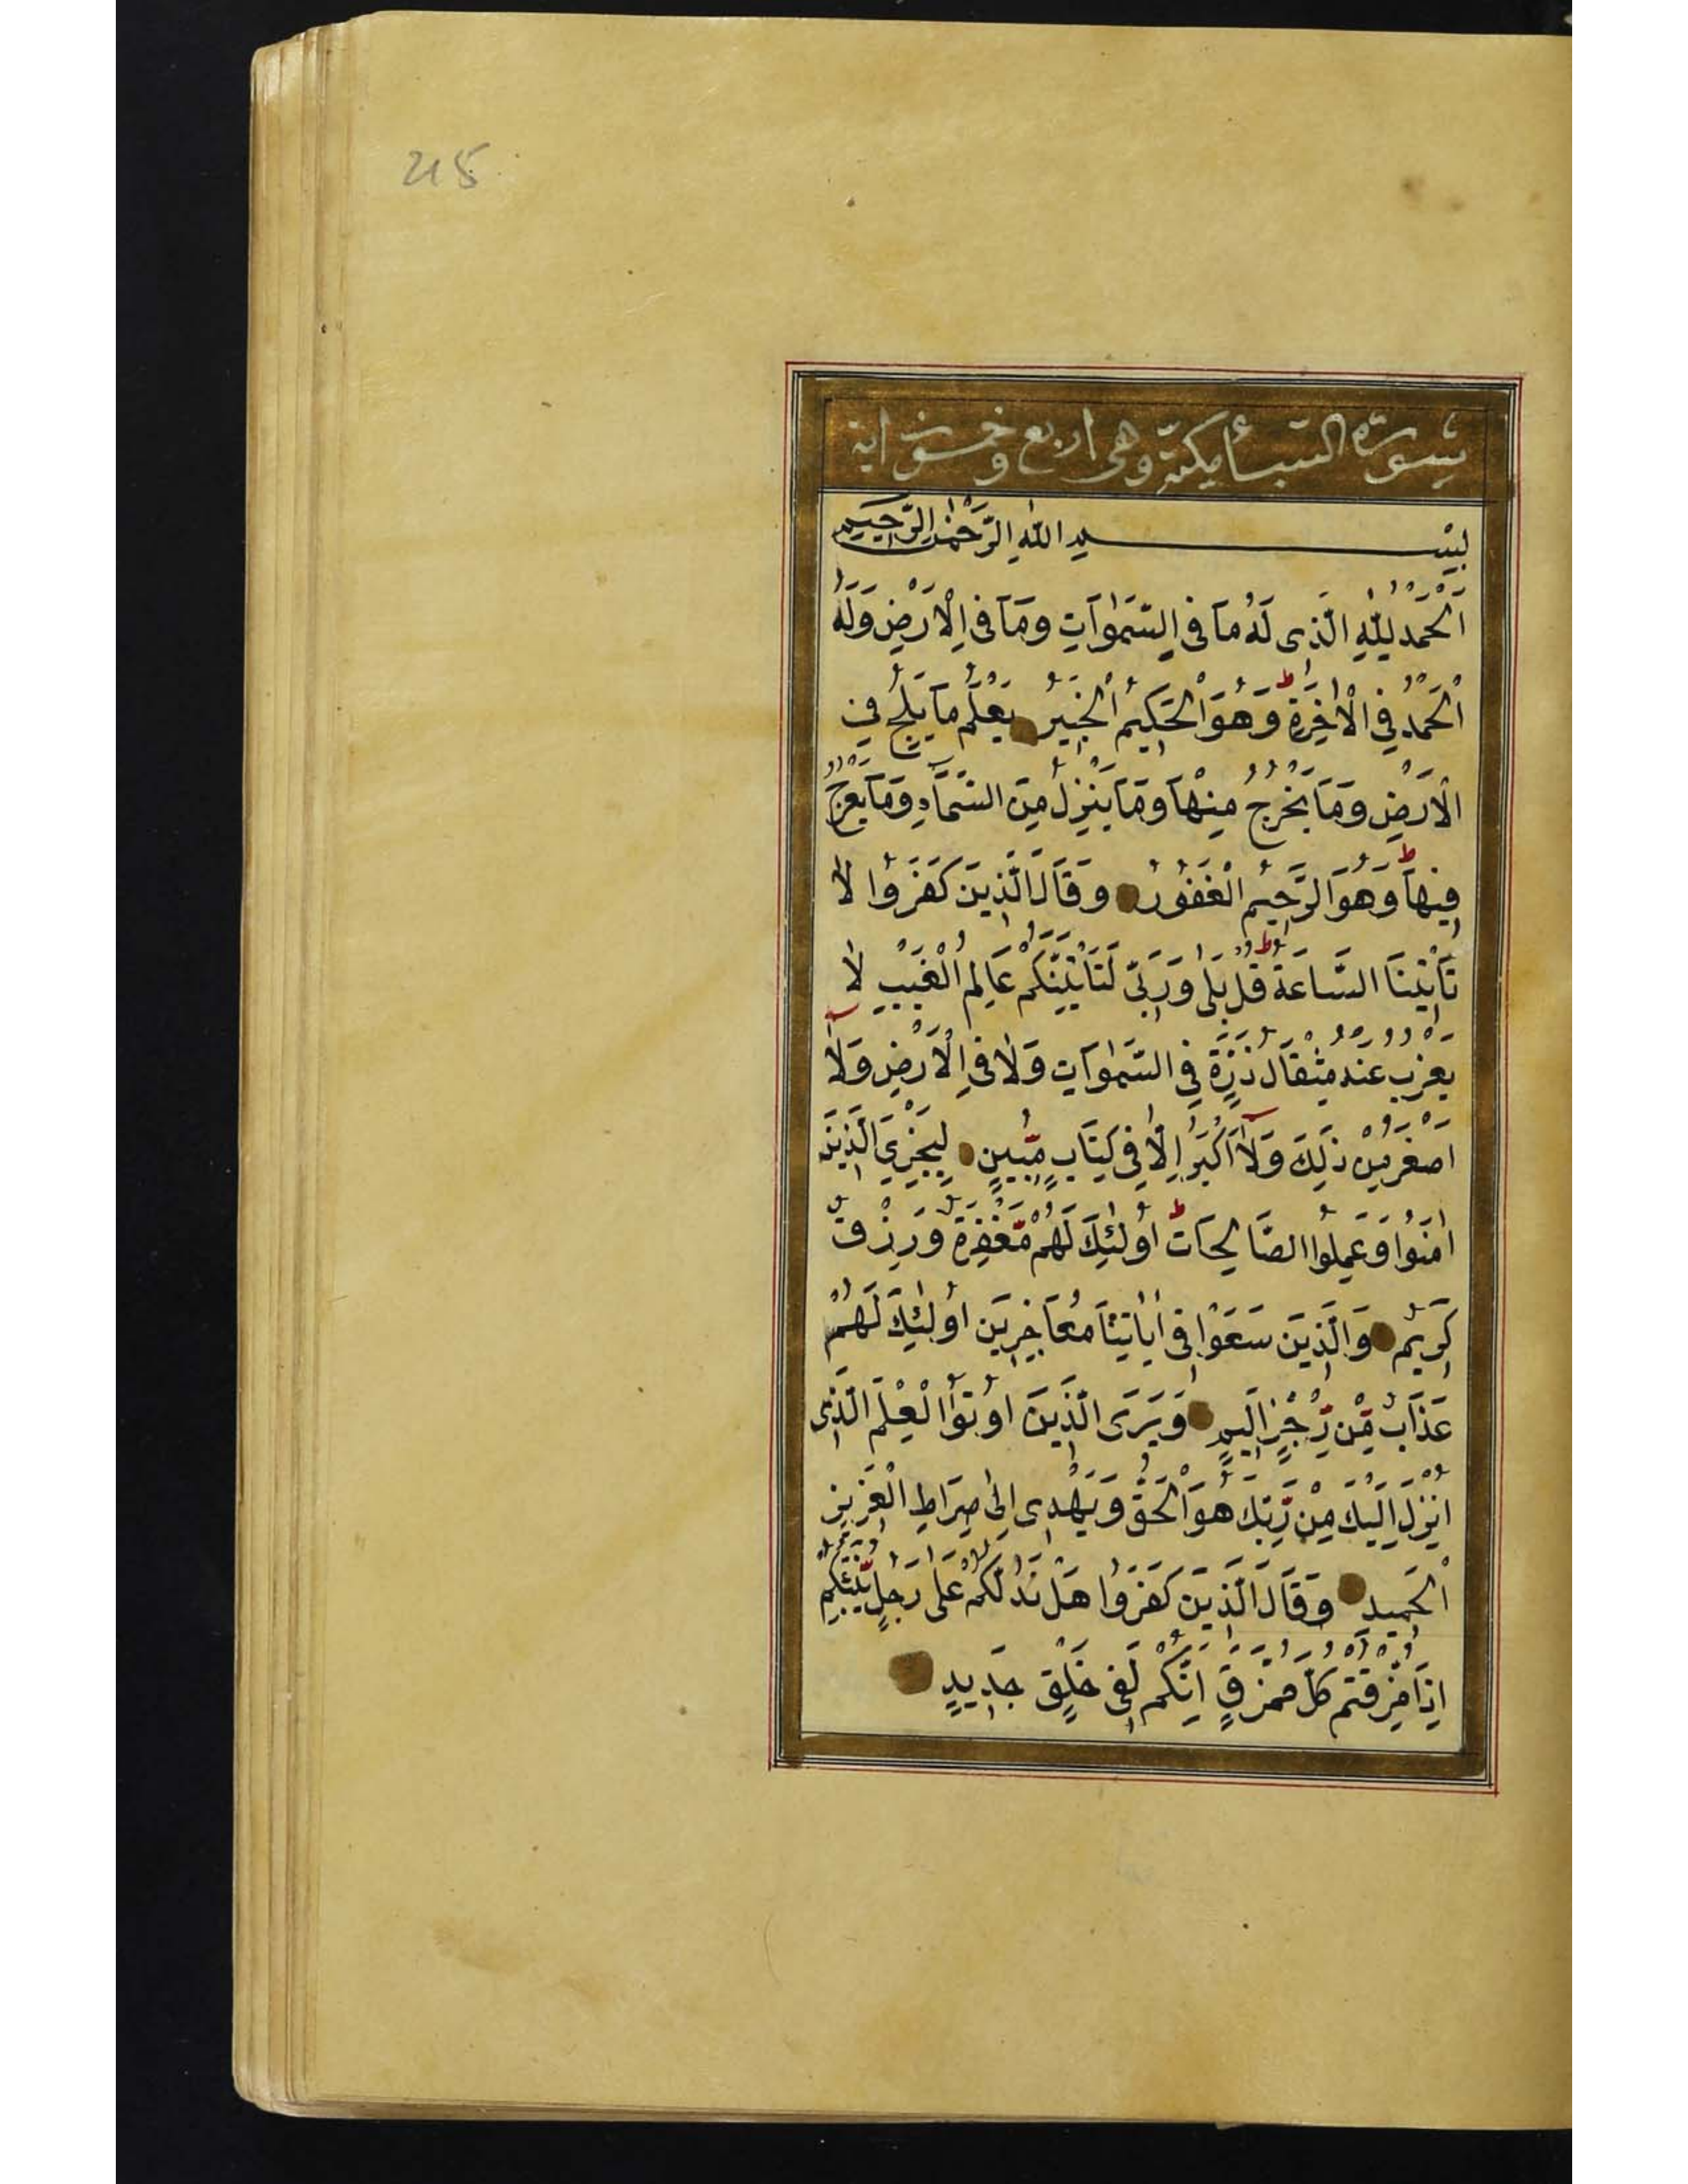 215
سورة السبأ مكية وهى اربع وخمسون اية
بِسْمِ اللّٰهِ الرَّحْمٰنِ الرَّحِيمِ
اَلْحَمْدُ لِلّٰهِ الَّذِى لَهُ مَا فِى السَّمٰوَاتِ وَمَا فِى الْاَرْضِ وَلَهُ
الْحَمْدُ فِى الْاٰخِرَةِ ط وَهُوَ الْحَكِيمُ الْخَبِيرُ يَعْلَمُ مَا يَلِجُ فِى
الْاَرْضِ وَمَا يَخْرُجُ مِنْهَا وَمَا يَنْزِلُ مِنَ السَّمَاءِ وَمَا يَعْرُجُ
فِيهَا ط وَهُوَ الرَّحِيمُ الْغَفُورُ وَقَالَ الَّذِينَ كَفَرُوا لَا
تَأْتِينَا السَّاعَةُ ط قُلْ بَلٰى وَرَبِّى لَتَأْتِيَنَّكُمْ عَالِمِ الْغَيْبِ لَا
يَعْزُبُ عَنْهُ مِثْقَالُ ذَرَّةٍ فِى السَّمٰوَاتِ وَلَا فِى الْاَرْضِ وَلَا
اَصْغَرُ مِنْ ذٰلِكَ وَلَا اَكْبَرُ اِلَّا فِى كِتَابٍ مُّبِينٍ لِيَجْزِىَ الَّذِينَ
اٰمَنُوا وَعَمِلُوا الصَّالِحَاتِ ط اُولٰئِكَ لَهُمْ مَّغْفِرَةٌ وَرِزْقٌ
كَرِيمٌ وَالَّذِينَ سَعَوْا فِى اٰيَاتِنَا مُعَاجِزِينَ اُولٰئِكَ لَهُمْ
عَذَابٌ مِّنْ رِّجْزٍ اَلِيمٍ وَيَرَى الَّذِينَ اُوتُوا الْعِلْمَ الَّذِى
اُنْزِلَ اِلَيْكَ مِنْ رَّبِّكَ هُوَ الْحَقَّ وَيَهْدِى اِلٰى صِرَاطِ الْعَزِيزِ
الْحَمِيدِ وَقَالَ الَّذِينَ كَفَرُوا هَلْ نَدُلُّكُمْ عَلٰى رَجُلٍ يُّنَبِّئُكُمْ
اِذَا مُزِّقْتُمْ كُلَّ مُمَزَّقٍ اِنَّكُمْ لَفِى خَلْقٍ جَدِيدٍ